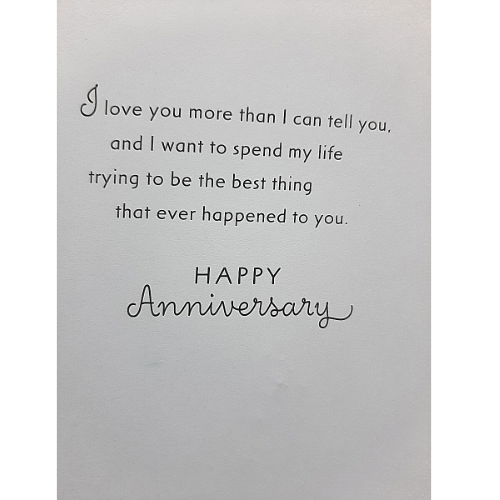 I love you more than I can tell you,
and I want to spend my life
trying to be the best thing
that ever happened to you.
HAPPY
Anniversary